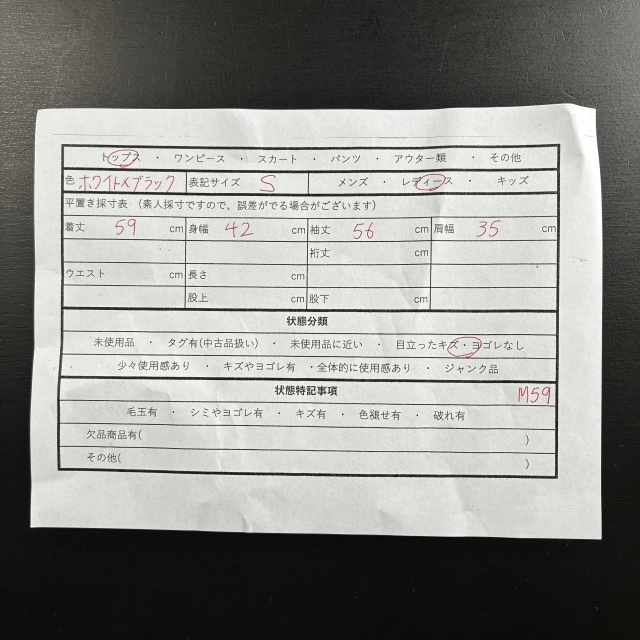 トップス ・ ワンピース ・ スカート ・ パンツ ・ アウター類 ・ その他
色 ホワイト×ブラック 表記サイズ S メンズ ・ レディース ・ キッズ
平置き採寸表 (素人採寸ですので、誤差がでる場合がございます)
着丈 59 cm 身幅 42 cm 袖丈 56 cm 肩幅 35 cm
裄丈 cm
ウエスト cm 長さ cm
股上 cm 股下 cm
状態分類
未使用品 ・ タグ有(中古品扱い) ・ 未使用品に近い ・ 目立ったキズ・ヨゴレなし
・ 少々使用感あり ・ キズやヨゴレ有 ・全体的に使用感あり ・ ジャンク品
状態特記事項 M59
毛玉有 ・ シミやヨゴレ有 ・ キズ有 ・ 色褪せ有 ・ 破れ有
欠品商品有( )
その他( )